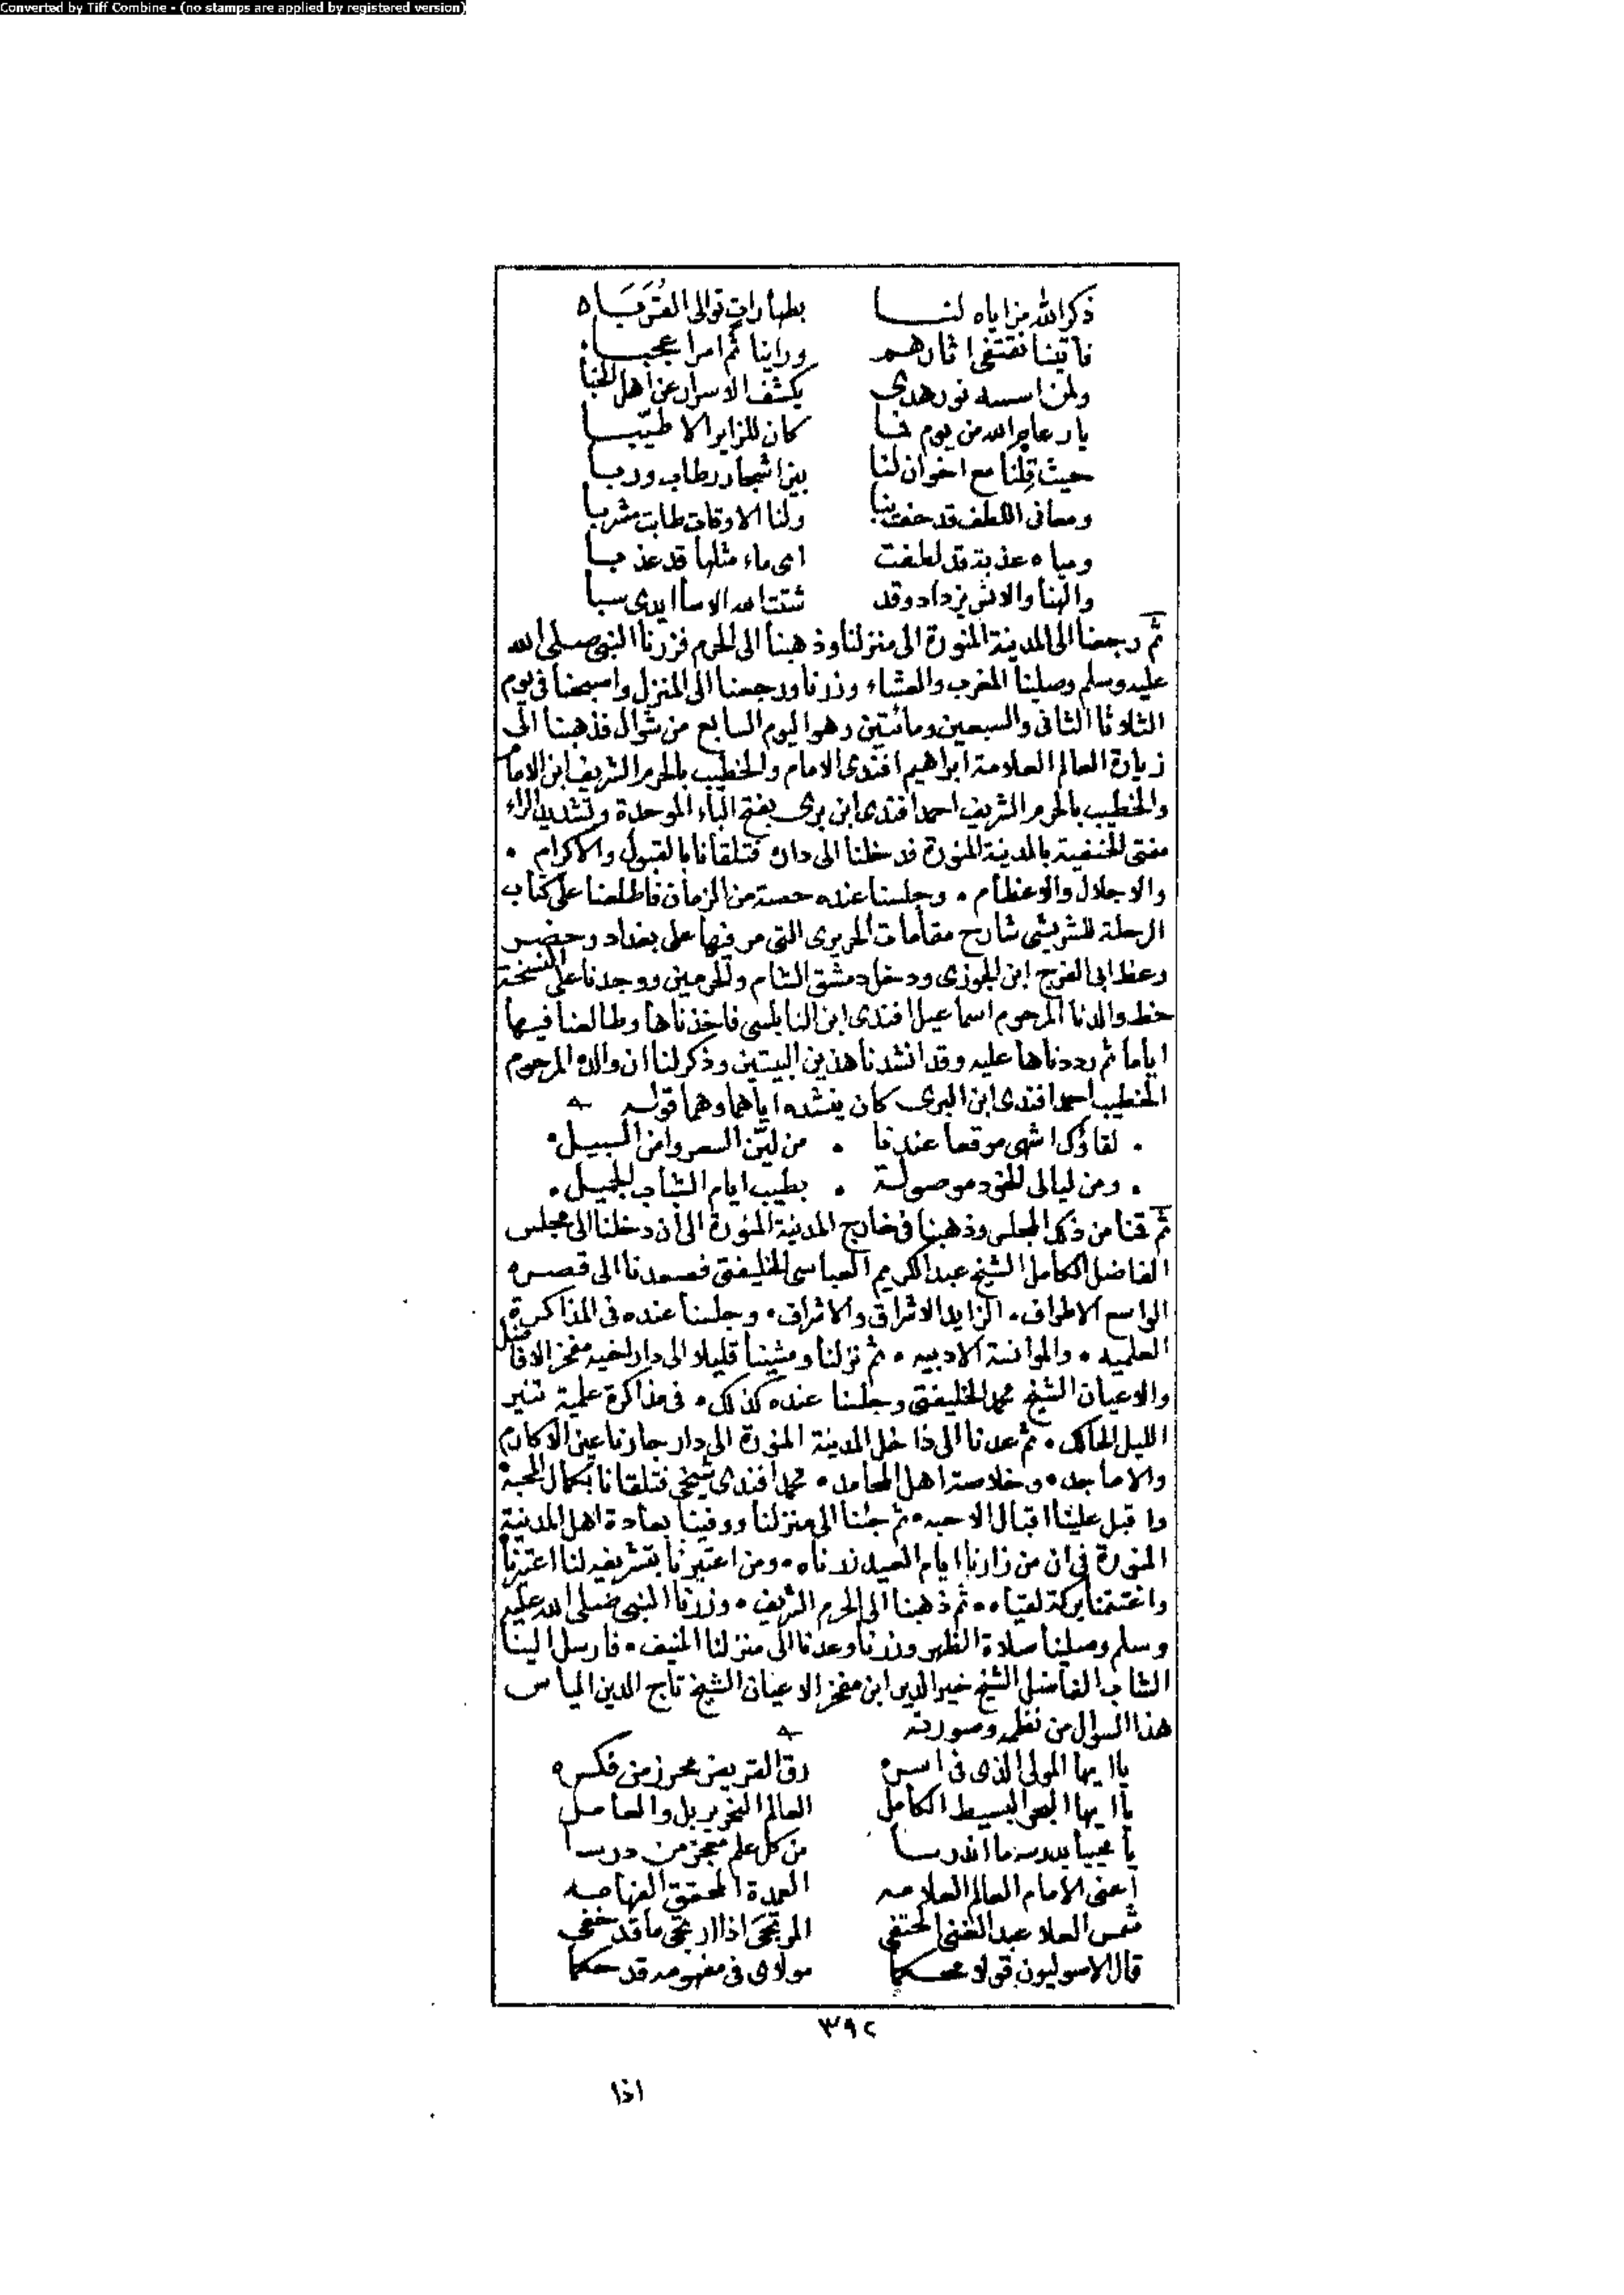 Converted by Tiff Combine - (no stamps are applied by registered version)
ذكر الله مزاياه لنا بطهارات توالى القربا
فاتينا نقتفى اثارهم وراينا ثم امرا عجبا
ولمن اسسه نور هدى يكشف الاسرار عن اهل الخبا
يا رعاه الله من يوم لنا كان للزاير الاطيبا
حيث قلنا مع اخوان لنا بين اشجار رطاب وربا
ومعانى اللطف قد حفت بنا ولنا الاوقات طابت مشربا
ومياه عذبة قد لطفت اى ماء مثلها قد عذبا
والهنا والانس يزداد وقد شتت الله الاسا ايدى سبا
ثم رجعنا الى المدينة المنورة الى منزلنا وذهبنا الى الحرم فزرنا النبى صلى الله
عليه وسلم وصلينا المغرب والعشاء وزرنا ورجعنا الى المنزل واصبحنا فى يوم
الثلاثا الثانى والسبعين ومائتين وهو اليوم السابع من شوال فذهبنا الى
زيارة العالم العلامة ابراهيم افندى الامام والخطيب بالحرم الشريف ابن الامام
والخطيب بالحرم الشريف احمد افندى ابن برى بفتح الباء الموحدة وتشديد الراء
مفتى الحنفية بالمدينة المنورة فدخلنا الى داره فتلقانا بالقبول والاكرام .
والاجلال والاعظام . وجلسنا عنده حصة من الزمان فاطلعنا على كتاب
الرحلة للشريشى شارح مقامات الحريرى التى مر فيها على بغداد وحضر
وعظ ابى الفرج ابن الجوزى ودخل دمشق الشام والحرمين ووجدنا على النسخة
خط والدنا المرحوم اسماعيل افندى ابن النابلسى فاخذناها وطالعنا فيها
اياما ثم رددناها عليه وقد انشدنا هذين البيتين وذكر لنا ان والده المرحوم
الخطيب احمد افندى ابن البرى كان ينشده اياهما وهما قوله
. لقاؤك اشهى موقعا عندنا . من لين السمر وامن السبيل .
. ومن ليالى الخود موصولة . بطيب ايام الشباب الجميل .
ثم قمنا من ذلك المجلس وذهبنا فى خارج المدينة المنورة الى ان دخلنا الى مجلس
الفاضل الكامل الشيخ عبد الكريم العباسى الخليفتى فصعدنا الى قصره
الواسع الاطراف . الزايد الاشراق والاشراف . وجلسنا عنده فى المذاكرة
العلميه . والموانسة الادبيه . ثم نزلنا ومشينا قليلا الى دار اخيه مفخر الافاضل
والاعيان الشيخ محمد الخليفتى وجلسنا عنده كذلك . فى مذاكرة علمية تنير
الليل الحالك . ثم عدنا الى داخل المدينة المنورة الى دار جارنا عين الاكارم
والاماجد . وخلاصة اهل المحامد . محمد افندى شيخى فتلقانا بكمال المحبة
واقبل علينا اقبال الاحبه . ثم جئنا الى منزلنا ووفينا بعادة اهل المدينة
المنورة فى ان من زارنا ايام العيد زرناه . ومن اعتبرنا بتشريفه لنا اعتبرنا
واغتنمنا بركة لقياه . ثم ذهبنا الى الحرم الشريف . وزرنا النبى صلى الله عليه
وسلم وصلينا صلاة الظهر وزرنا وعدنا الى منزلنا المنيف . فارسل الينا
الشاب الفاضل الشيخ خير الدين ابن مفخر الاعيان الشيخ تاج الدين الياس
هذا السوال من نظمه وصورته
يا ايها المولى الذى فى اسره رق القريض محرز من فكره
يا ايها البحر البسيط الكامل العالم النحرير بل والعامل
يا محييا بدرسه ما اندرسا من كل علم معجز من درسا
أعنى الامام العالم العلامه العمدة المحقق الفهامه
شمس العلا عبد الغنى الحنفى المرتجى اذا ارتجى ما قد خفى
قال الاصوليون قولا محكما مولاى فى مفهومه قد حكما
٣٩٢
اذا